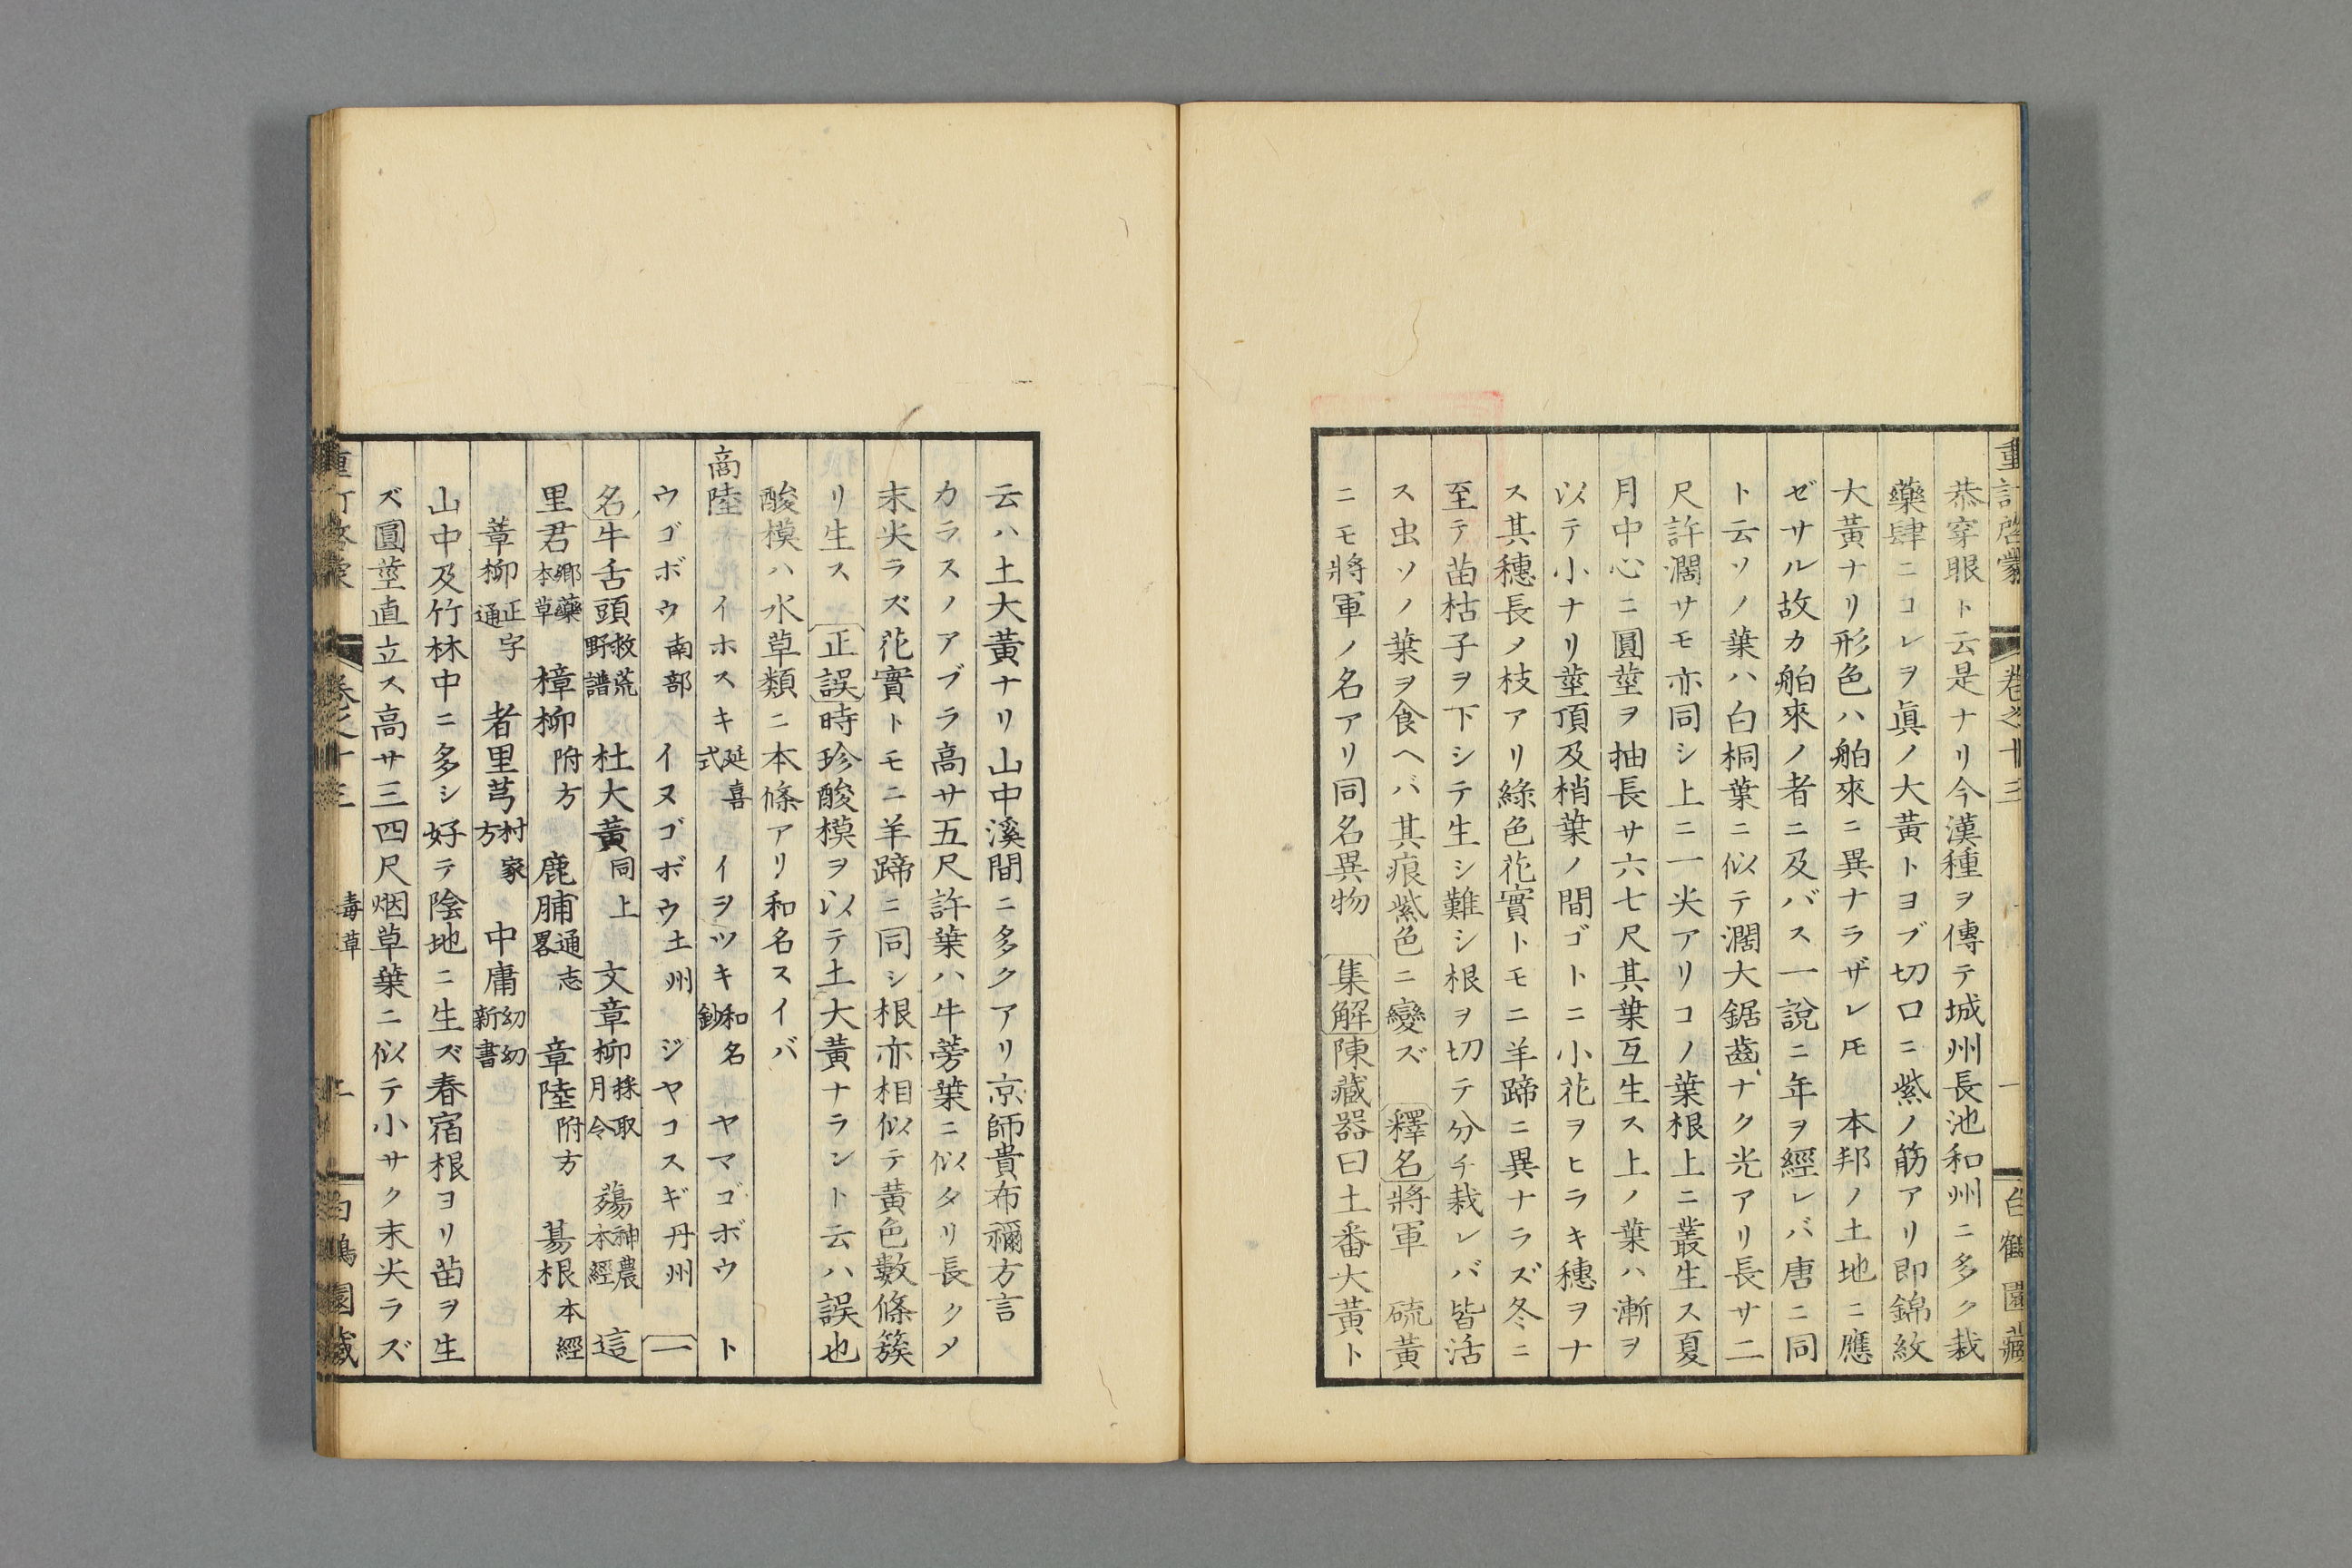 重訂啓蒙 卷之十三 一 白鶴園藏
恭穿眼ト云是ナリ今漢種ヲ傳テ城州長池和州ニ多ク栽
藥肆ニコレヲ眞ノ大黃トヨブ切口ニ紫ノ筋アリ即錦紋
大黃ナリ形色ハ舶來ニ異ナラザレ𪜈 本邦ノ土地ニ應
ゼサル故カ舶來ノ者ニ及バス一說ニ年ヲ經レバ唐ニ同
ト云ソノ葉ハ白桐葉ニ似テ濶大鋸齒ナク光アリ長サ二
尺許濶サモ亦同シ上ニ一尖アリコノ葉根上ニ叢生ス夏
月中心ニ圓莖ヲ抽長サ六七尺其葉互生ス上ノ葉ハ漸ヲ
以テ小ナリ莖頂及梢葉ノ間ゴトニ小花ヲヒラキ穗ヲナ
ス其穗長メ枝アリ綠色花實トモニ羊蹄ニ異ナラズ冬ニ
至テ苗枯子ヲ下シテ生シ難シ根ヲ切テ分チ栽レバ皆活
ス虫ソノ葉ヲ食ヘバ其痕紫色ニ變ズ 釋名將軍 硫黃
ニモ將軍ノ名アリ同名異物 集解陳藏器曰土番大黃ト
云ハ土大黃ナリ山中溪間ニ多クアリ京師貴布禰方言
カラスノアブラ高サ五尺許葉ハ牛蒡葉ニ似タリ長クメ
末尖ラズ花實トモニ羊蹄ニ同シ根亦相似テ黃色數條簇
リ生ス 正誤時珍酸模ヲ以テ土大黃ナラント云ハ誤也
酸模ハ水草類ニ本條アリ和名スイバ
商陸 イホスキ延喜式 イヲツキ和名鈔 ヤマゴボウ ト
ウゴボウ南部 イヌゴボウ土州 ジヤコスギ丹州 一
名牛舌頭救荒野譜 杜大黃同上 文章柳採取月令 蕩神農本經 這
里君鄉藥本草 樟柳附方 鹿脯通志畧 章陸附方 募根本經
葦柳正字通 者里芎村家方 中庸幼幼新書
山中及竹林中ニ多シ好テ陰地ニ生ズ春宿根ヨリ苗ヲ生
ズ圓莖直立ス高サ三四尺烟草葉ニ似テ小サク末尖ラズ
卷之十三 毒草 園藏